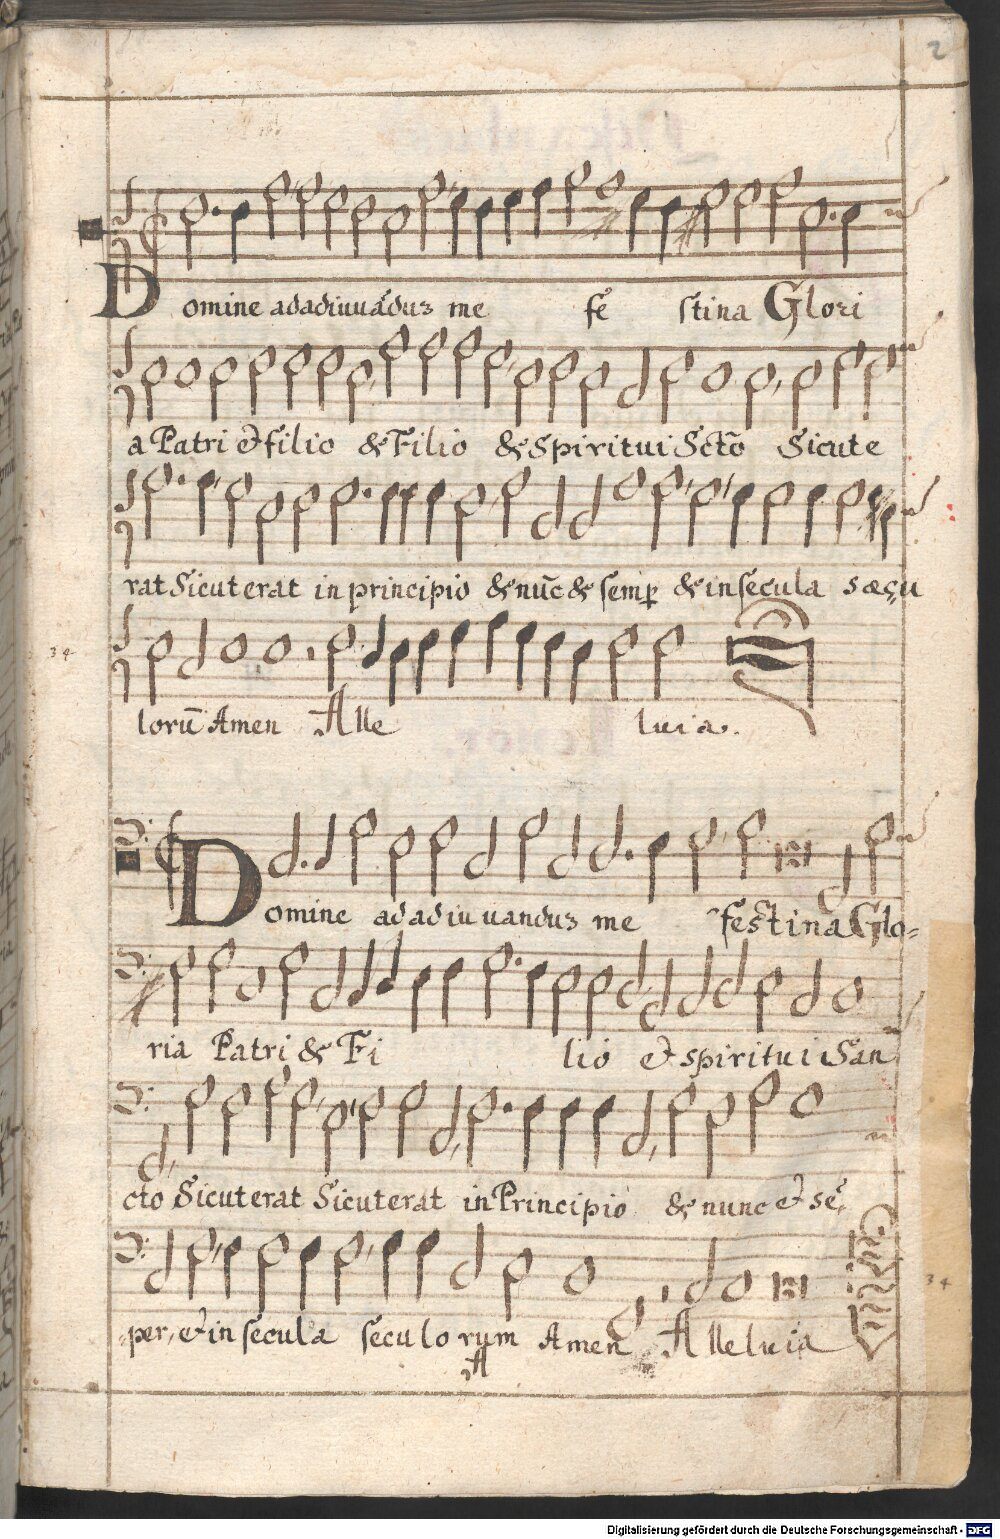 2
Domine adadiuuãduz me fe stina Glori
a Patri et filio & Filio & Spiritui Scto Sicute
rat Sicut erat in principio & nuc̃ & semp & in secula sæcu
34
lorũ Amen Alle luia.
Domine ad adiuuanduz me festina Glo=
ria Patri & Fi lio et spiritui San
cto Sicut erat Sicut erat in Principio & nunc et sé,
34
per, et in secula seculo rum Amen Alleluia
A
Digitalisierung gefördert durch die Deutsche Forschungsgemeinschaft - DFG